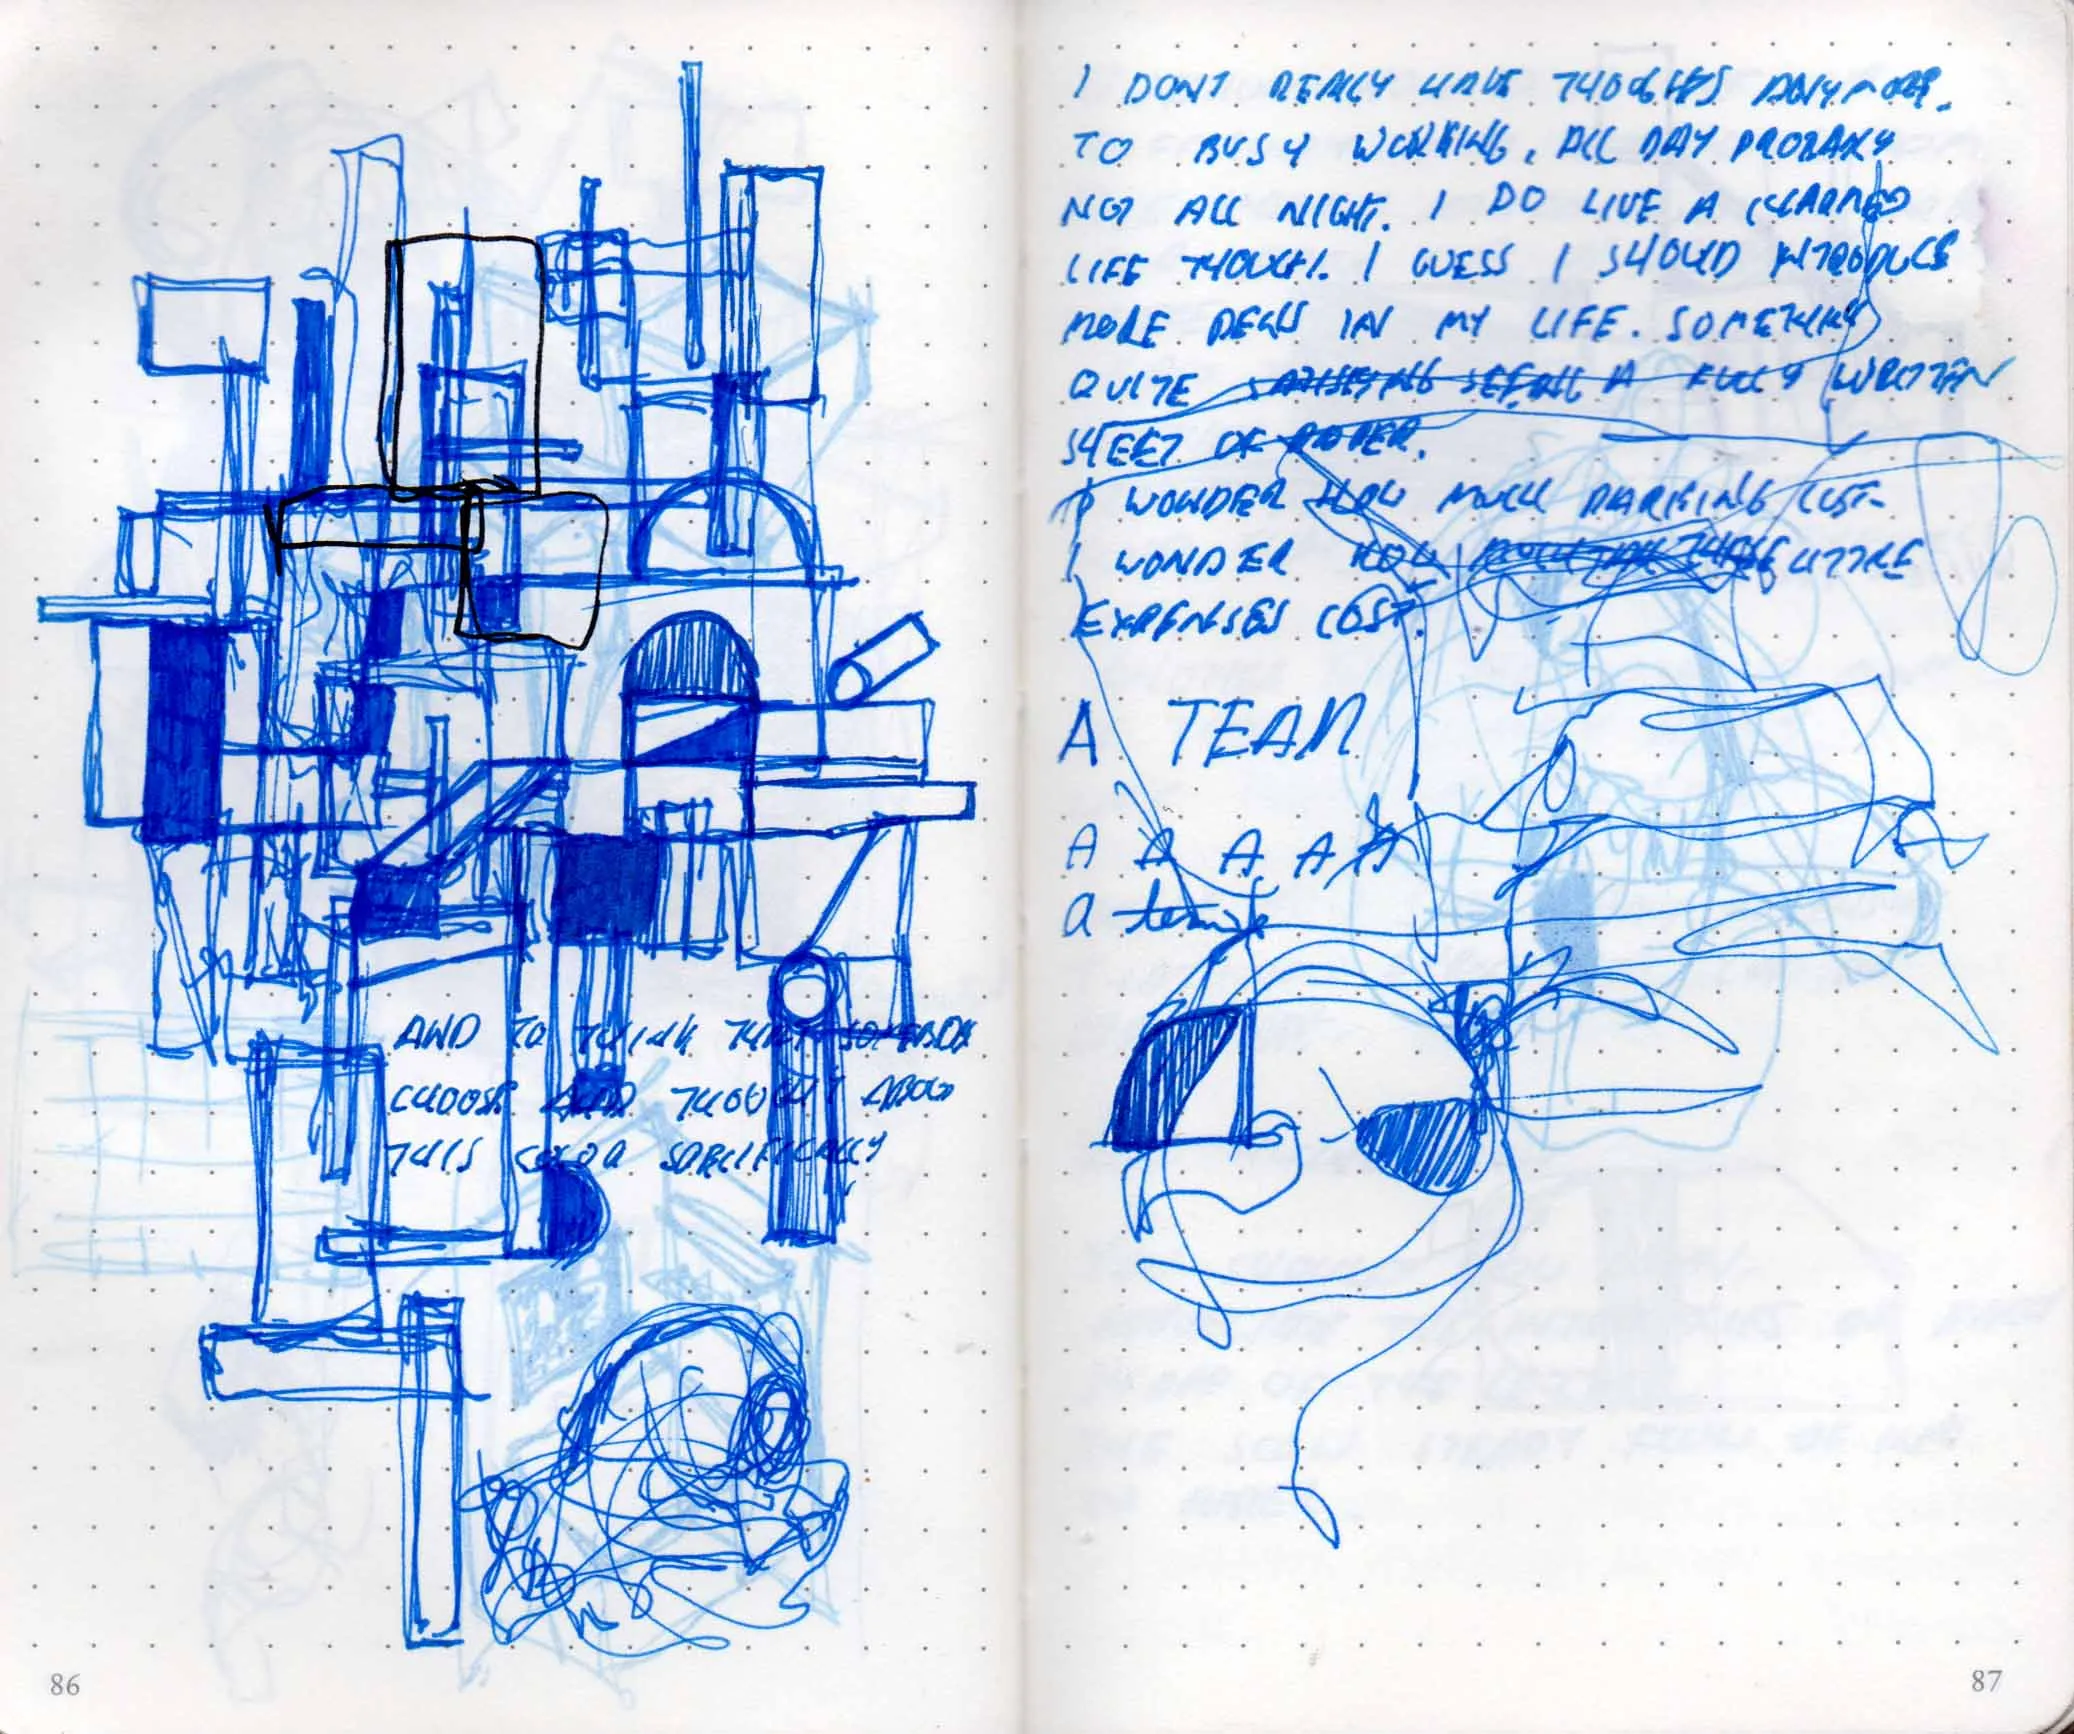 AND TO THINK THAT SOMEBODY
CHOOSE AND THOUGHT ABOU
THIS COLOR SPECIFICALLY
86
I DONT REALLY HAVE THOUGHTS ANYMORE.
TO BUSY WORKING, ALL DAY PROBABLY
NOT ALL NIGHT. I DO LIVE A CHARMED
LIFE THOUGH. I GUESS I SHOULD INTRODUCE
MORE PENS IN MY LIFE. SOMETHING
QUITE SATISFYING SEEING A FULLY WRITTEN
SHEET OF PAPER.
I WONDER HOW MUCH PARKING COST.
I WONDER HOW MUCH LITTLE
EXPENSES COST.
A TEAM
A A A A A
a team
87